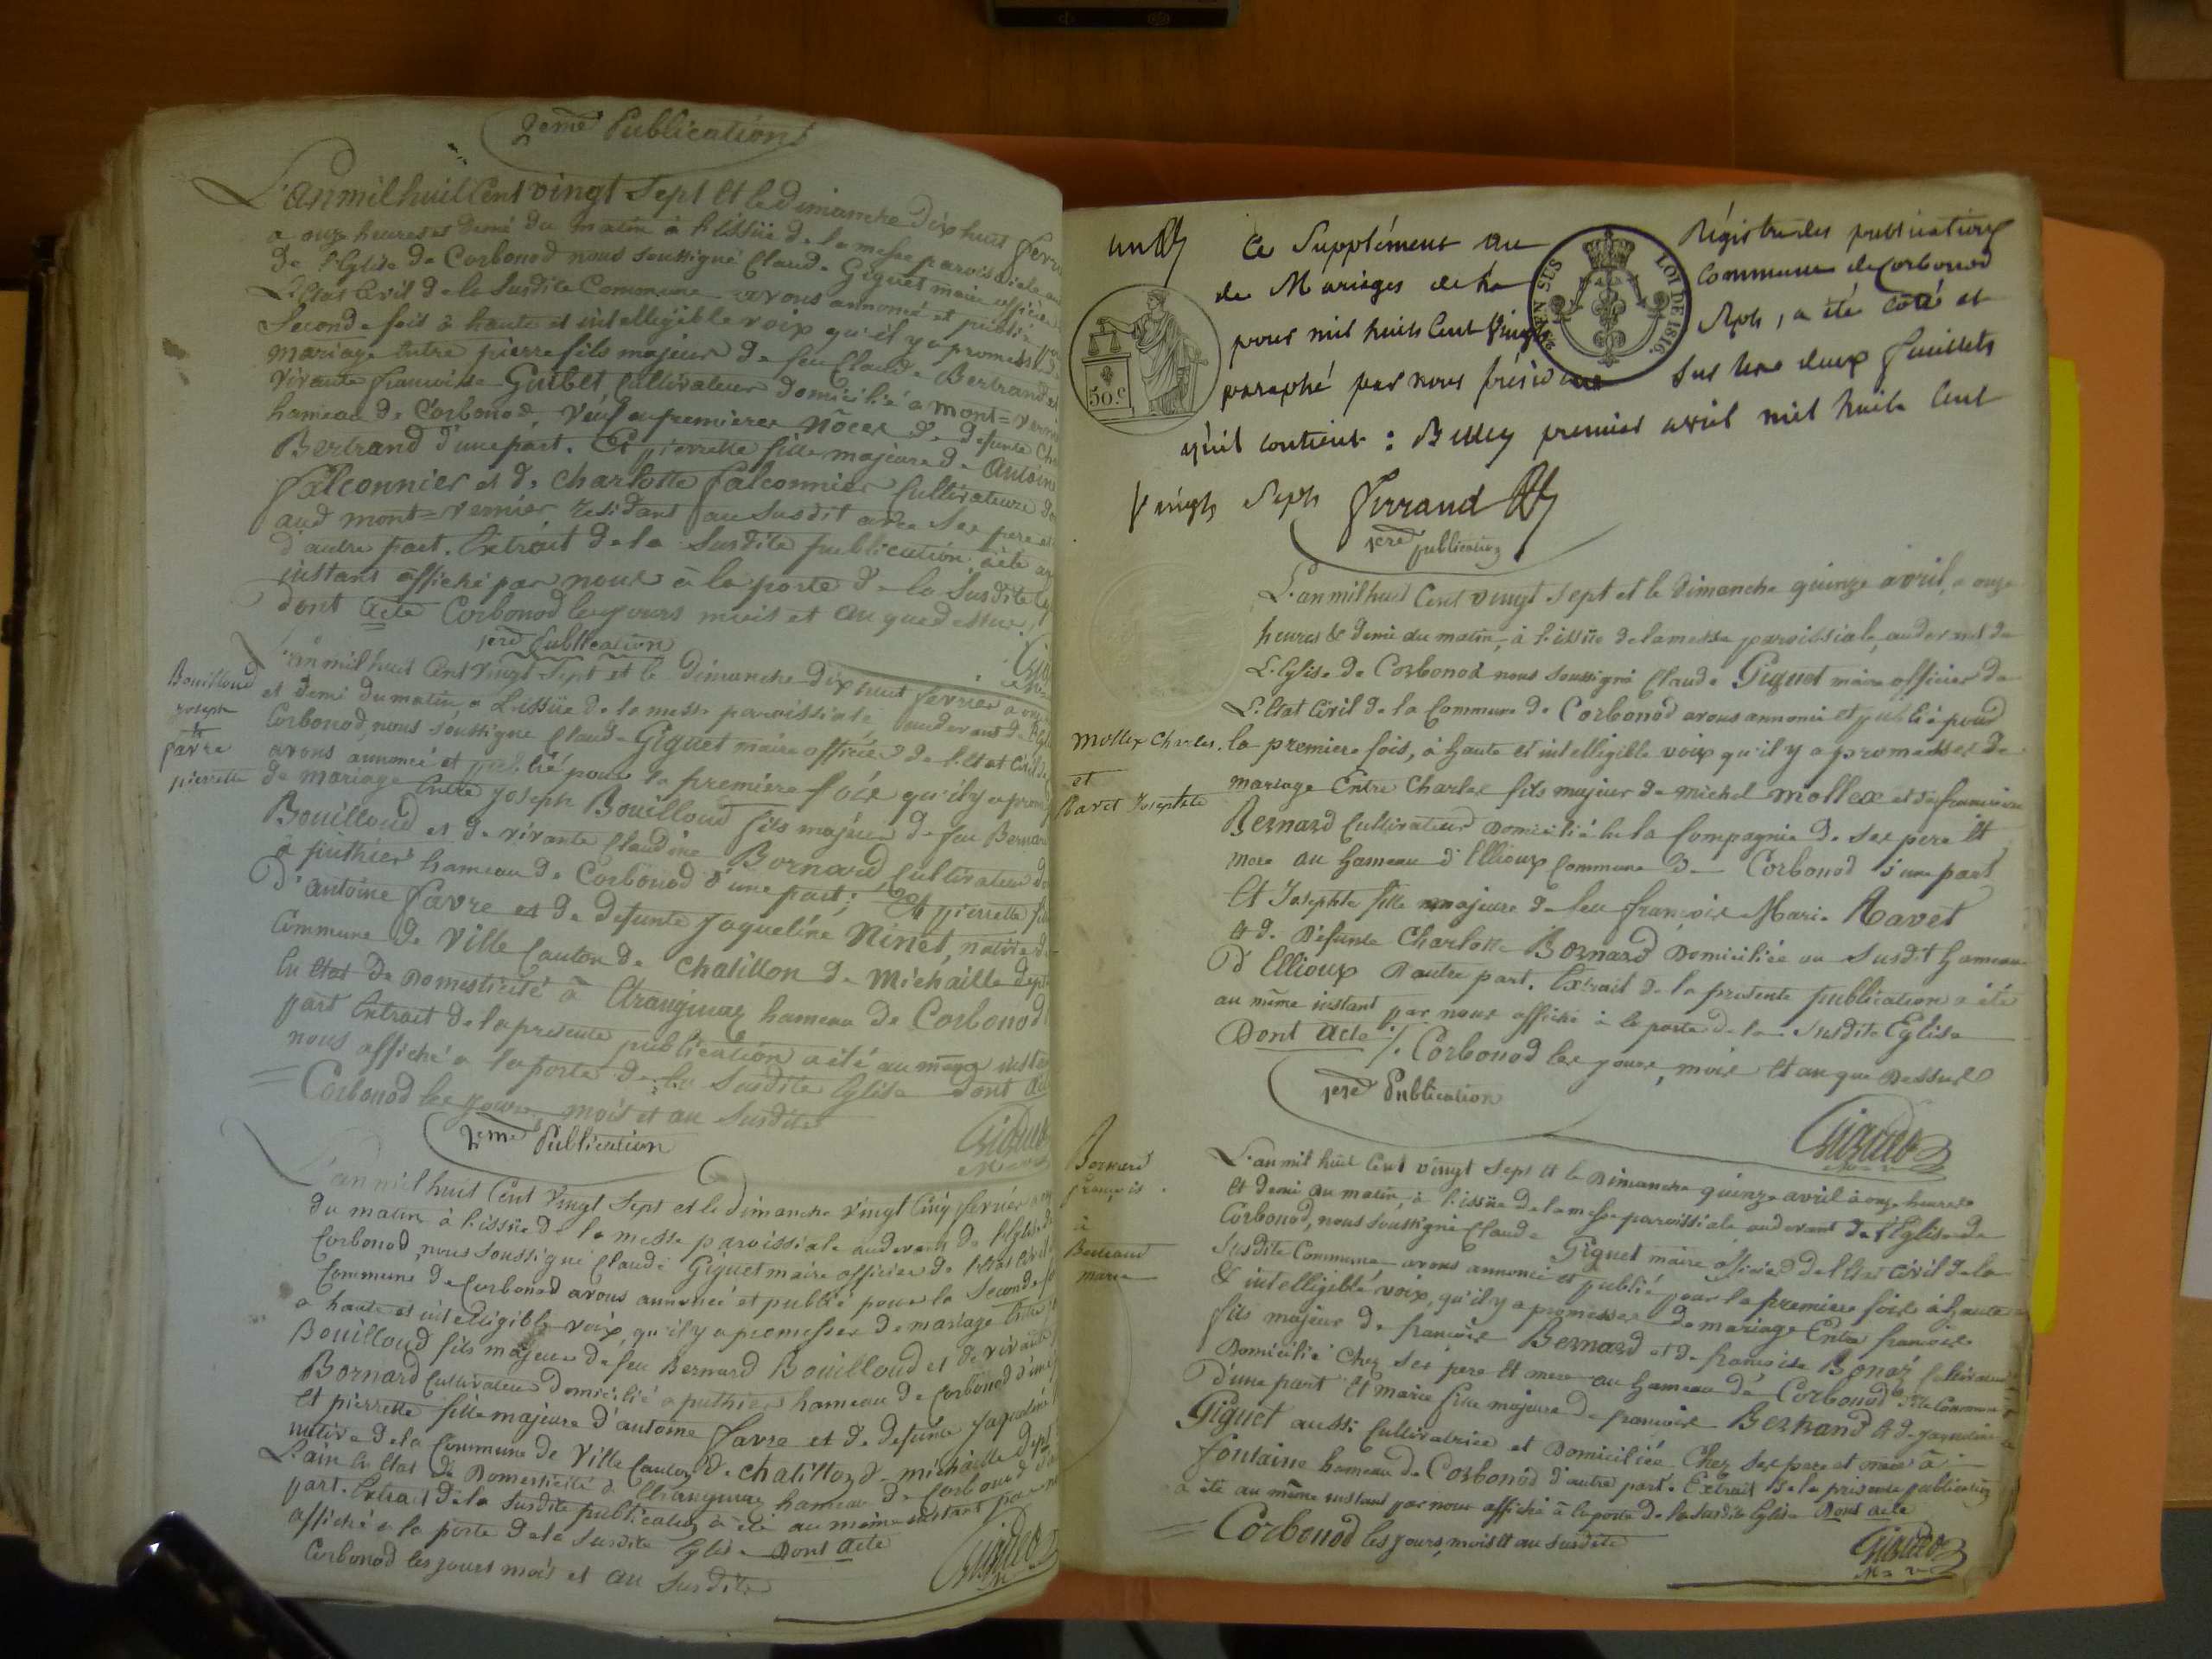 2eme Publication
L'an mil huit Cent vingt Sept et le Dimanche dix huit fevr
a onze heures et demi du matin à l'issüe de la messe paroissiale au
de l'Eglise de Corbonod nous soussigné Claude Giguet maire officier
L'Etat Civil de la Susdite Commune avons annoncé et publié
Seconde fois à haute et intelligible voix qu'il y a promesse de
mariage Entre pierre fils majeur de feu Claude Bertrand et
vivante francoise Gribet Cultivateur domicilié a mont=vernier
hameau de Corbonod Veuf en premieres nôces de defunte Ch
Bertrand d'une part. Et pierrette fille majeure de Antoine
falconnier et de Charlotte falconnier Cultivateurs
aud mont=vernier residant au susdit avec ses pere et
d'autre part. Extrait de la Susdite publication à été au
instant affiché par nous à la porte de la Susdite Egl
dont acte Corbonod les jours mois et an que dessus
1ere Publication
Bouilloud
joseph
et
favre
pierrette
L'an mil huit Cent Vingt Sept et le dimanche dix huit fevrier a on
et demi du matin a L'issüe de la messe paroissiale au devant de l'Egli
Corbonod, nous soussigné Claude Giguet maire officier de l'Etat Civil de
avons annoncé et publié pour la premiere fois qu'il y a prom
de mariage Entre joseph Bouilloud fils majeur de feu Bernard
Bouilloud et de vivante Claudine Bornard Cultivateur
à puthier hameau de Corbonod d'une part; Et pierrette fil
D'antoine favre et de defunte jaqueline Ninet, native de
Commune de Ville Canton de Chatillon de Michaille dept
En Etat de Domesticité à Etranginaz hameau de Corbonod
part Extrait de la presente publication a été au même insta
nous affiché a la porte de la Susdite Eglise dont ac
Corbonod les jours mois et an Susdits
2eme Publication
L'an mil huit Cent Vingt Sept et le dimanche vingt Cinq fevrier
du matin à l'issüe de la messe paroissiale au devant de l'Eglise de
Corbonod, nous soussigné Claude Giguet maire officier de l'Etat Civil
Commune de Corbonod avons annoncé et publié pour la Seconde fo
a haute et intelligible voix, qu'il y a promesses de mariage Entre
Bouilloud fils majeur de feu Bernard Bouilloud et de vivante
Bornard Cultivateur Domicilié a puthier hameau de Corbonod d'une
Et pierrette fille majeure d'antoine favre et de defunte jaqueline
native de la Commune de Ville Canton de Chatillon de michaille dept
L'ain En Etat de Domesticité à Etranginaz hameau de Corbonod d'
part. Extrait de la Susdite publication à été au même instant par
affiché a la porte de la Susdite Eglise Dont acte
Corbonod les jours mois et an Susdits
50.c
EN SUS
LOI DE 1816.
Ce Supplément au Régistre des publications
de Mariages de la Commune de Corbonod
pour mil huit Cent Vingt Sept, a été coté et
paraphé par nous président sur les deux feuillets
qu'il contient : Belley premier avril mil huit Cent
Vingt Sept Ferrand
1ere publication
Mollex Charles.
et
Ravet Josephte
L'an mil huit Cent vingt sept et le Dimanche quinze avril, a onze
heures & demi du matin, à l'issüe de la messe paroissiale, au devant de
L'Eglise de Corbonod nous soussigné Claude Giguet maire officier de
L'Etat Civil de la Commune de Corbonod avons annoncé et publié pour
la premiere fois, à haute et intelligible voix qu'il y a promesses de
mariage Entre Charles fils majeur de michel mollex et de francoise
Bernard Cultivateur Domicilié En la Compagnie de ses pere Et
mere au hameau d'Ellioux Commune de Corbonod d'une part
Et Josephte fille majeure de feu françois Marie Ravet
& de Défunte Charlotte Bornard Domiciliée au Susdit hameau
D'Ellioux D'autre part. Extrait de la presente publication a été
au même instant par nous affiché à la porte de la Susdite Eglise
Dont acte ./. Corbonod les jours, mois Et an que Dessus
1ere Publication
Bornard
françois
à
Bertrand
marie
L'an mil huit Cent vingt Sept Et le Dimanche quinze avril à onze heures
Et demi du matin, à l'issüe de la messe paroissiale au devant de l'Eglise de
Corbonod, nous soussigné Claude Giguet maire officier de l'Etat Civil de la
Susdite Commune, avons annoncé et publié pour la premiere fois à haute
& intelligible voix, qu'il y a promesses de mariage Entre françois
fils majeur de francois Bernard et de françoise Bonaz Cultivateur
Domicilié Chez ses pere Et mere au hameau de Corbonod dite Commune
D'une part Et marie fille majeure de francois Bertrand & de jaqueline
Giguet aussi Cultivatrice et Domiciliée Chez ses pere et mere à
fontaine hameau de Corbonod d'autre part. Extrait de la presente publication
a été au même instant par nous affiché à la porte de la Susdite Eglise Dont acte
Corbonod les jours, mois Et an susdits